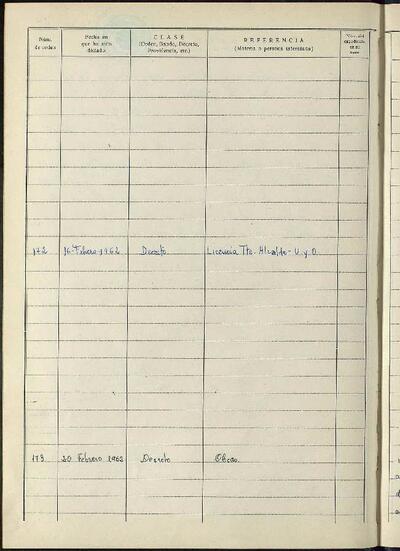 Núm. de orden
Fecha en que ha sido dictado
CLASE
(Orden, Bando, Decreto, Providencia, etc.)
REFERENCIA
(Materia o persona interesada)
172 16 Febrero 1962 Decreto Licencia Tte. Alcalde - U. y O.
173 20 Febrero 1962 Decreto Obras.